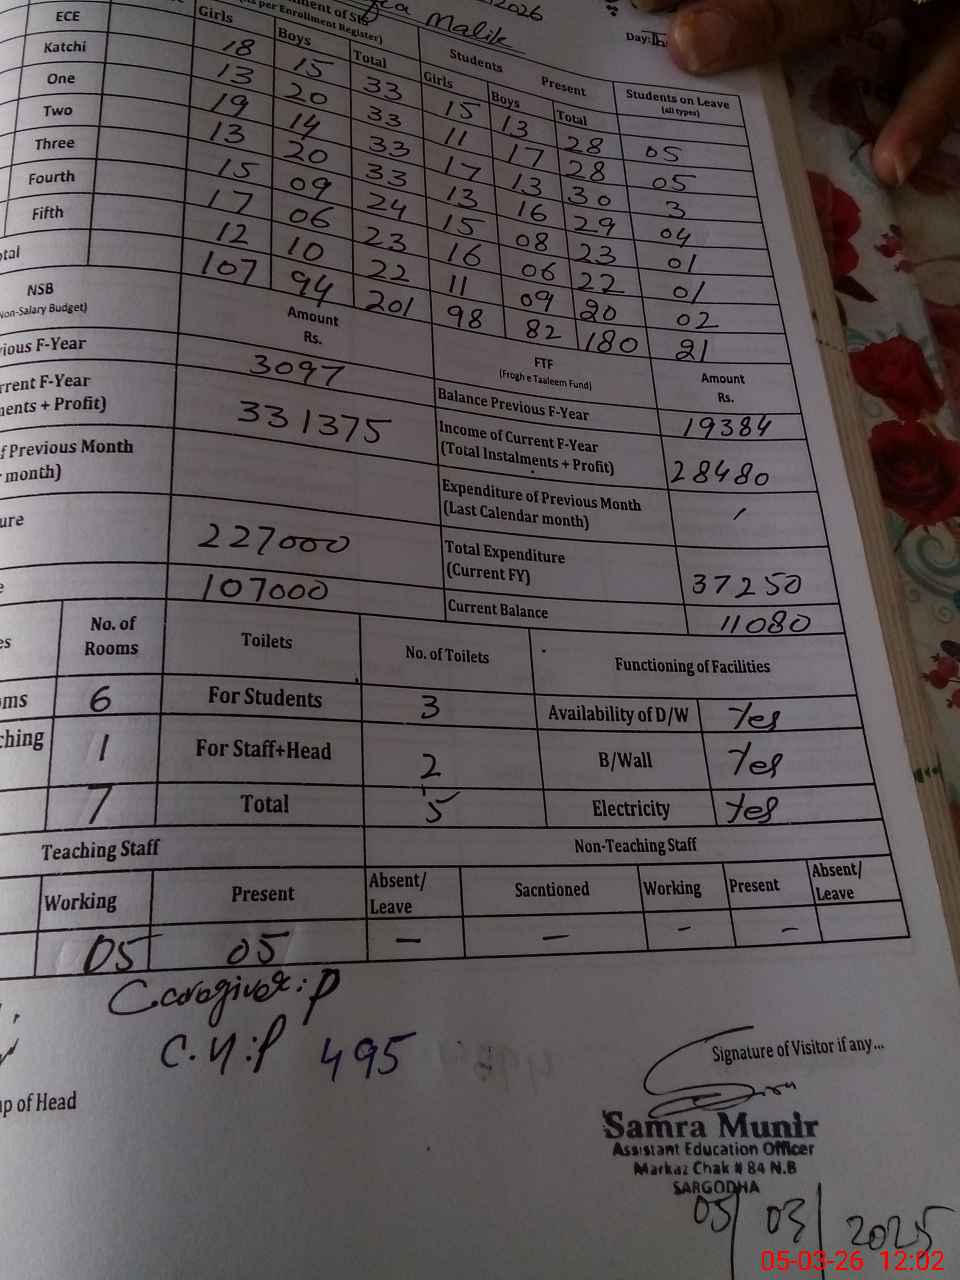 Malik 2026
Day:
(As per Enrollment Register)
Students Present
Students on Leave
(all types)
Girls Boys Total Girls Boys Total
ECE 18 15 33 15 13 28 05
Katchi 13 20 33 11 17 28 05
One 19 14 33 17 13 30 3
Two 13 20 33 13 16 29 04
Three 15 09 24 15 08 23 01
Fourth 17 06 23 16 06 22 01
Fifth 12 10 22 11 09 20 02
otal 107 94 201 98 82 180 21
NSB
Non-Salary Budget)
Amount
Rs.
FTF
(Frogh e Taaleem Fund)
Amount
Rs.
ious F-Year 3097 Balance Previous F-Year 19384
rrent F-Year
ments + Profit) 331375
Income of Current F-Year
(Total Instalments + Profit) 28480
f Previous Month
month)
Expenditure of Previous Month
(Last Calendar month) /
ure 227000
Total Expenditure
(Current FY) 37250
e 107000 Current Balance 11080
es No. of Rooms Toilets No. of Toilets Functioning of Facilities
ms 6 For Students 3 Availability of D/W Yes
ching 1 For Staff+Head 2 B/Wall Yes
7 Total 5 Electricity Yes
Teaching Staff Non-Teaching Staff
Working Present Absent/ Leave Sacntioned Working Present Absent/ Leave
05 05 — — – –
Caregiver: P
C.N:P 495
Signature of Visitor if any...
p of Head
Samra Munir
Assistant Education Officer
Markaz Chak # 84 N.B
SARGODHA
05/03/2025
05-03-26 12:02